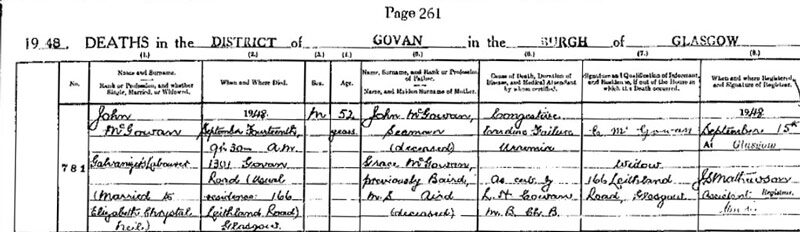 Page 261
1948. DEATHS in the DISTRICT of GOVAN in the BURGH of GLASGOW
(1.) (2.) (3.) (4.) (5.) (6.) (7.) (8.)
No.
Name and Surname.
Rank or Profession, and whether
Single, Married, or Widowed.
When and Where Died.
Sex.
Age.
Name, Surname, and Rank or Profession
of Father.
Name, and Maiden Surname of Mother.
Cause of Death, Duration of
Disease, and Medical Attendant
by whom certified.
Signature and Qualification of Informant,
and Residence, if out of the House in
which the Death occurred.
When and where Registered,
and Signature of Registrar.
781
John
McGowan
Galvanizer's Labourer
(Married to
Elizabeth Chrystal
Neil)
1948
September Fourteenth
9h. 30m A.M.
1301 Govan
Road (Usual
residence 166
Leithland Road)
Glasgow
M
52
years
John McGowan,
Seaman
(deceased)
Grace McGowan,
previously Baird,
m.s. Aird
(deceased)
Congestive
Cardiac Failure
Uraemia
As cert. by
L. H. Cowan
M.B. Ch.B.
E McGowan
Widow
166 Leithland
Road, Glasgow
1948
September 15th
At Glasgow
Assistant Registrar.